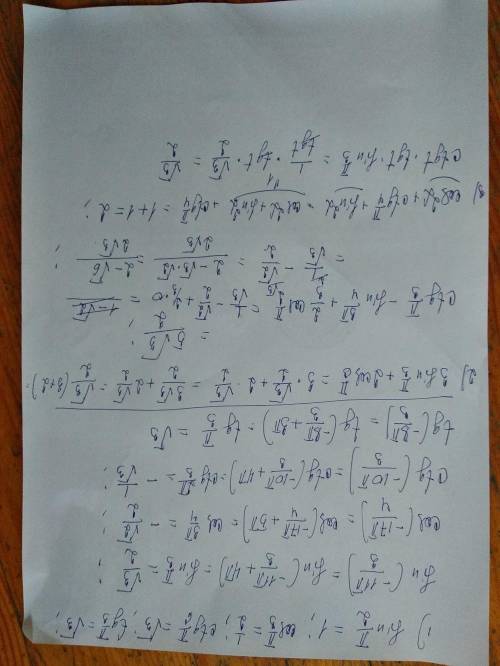 1) sin π/2 = 1; cos π/3 = 1/2; ctg π/6 = √3; tg π/3 = √3;
sin(-11π/3) = sin(-11π/3 + 4π) = sin π/3 = √3/2;
cos(-17π/4) = cos(-17π/4 + 5π) = cos 3π/4 = -√2/2;
ctg(-10π/3) = ctg(-10π/3 + 4π) = ctg 2π/3 = -1/√3;
tg(-8π/3) = tg(-8π/3 + 3π) = tg π/3 = √3
2) 3 sin π/3 + 2cos π/6 = 3·√3/2 + 2·√3/2 = 3√3/2 + 2√3/2 = √3/2 (3+2) =
= 5√3/2;
ctg π/3 - sin 3π/4 + 2/3 cos π/2 = 1/√3 - √2/2 + 2/3·0 =
= 1/√3 - √2/2 = 2-√3·√2/2√3 = 2-√6/2√3;
3) cos²α + ctg π/4 + sin²α = cos²α + sin²α + ctg π/4 = 1+1 = 2;
1
ctgt · tgt · sin π/3 = 1/tgt · tgt · √3/2 = √3/2